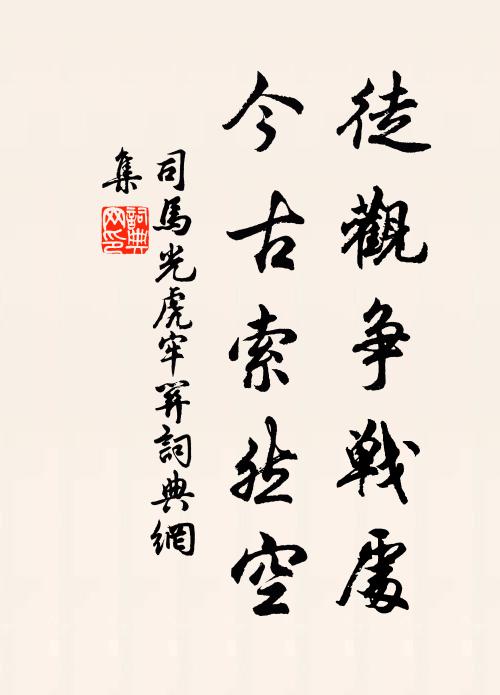 徒觀争戰處
今古索然空
司馬光虎牢關詞典網
集
詞典網印